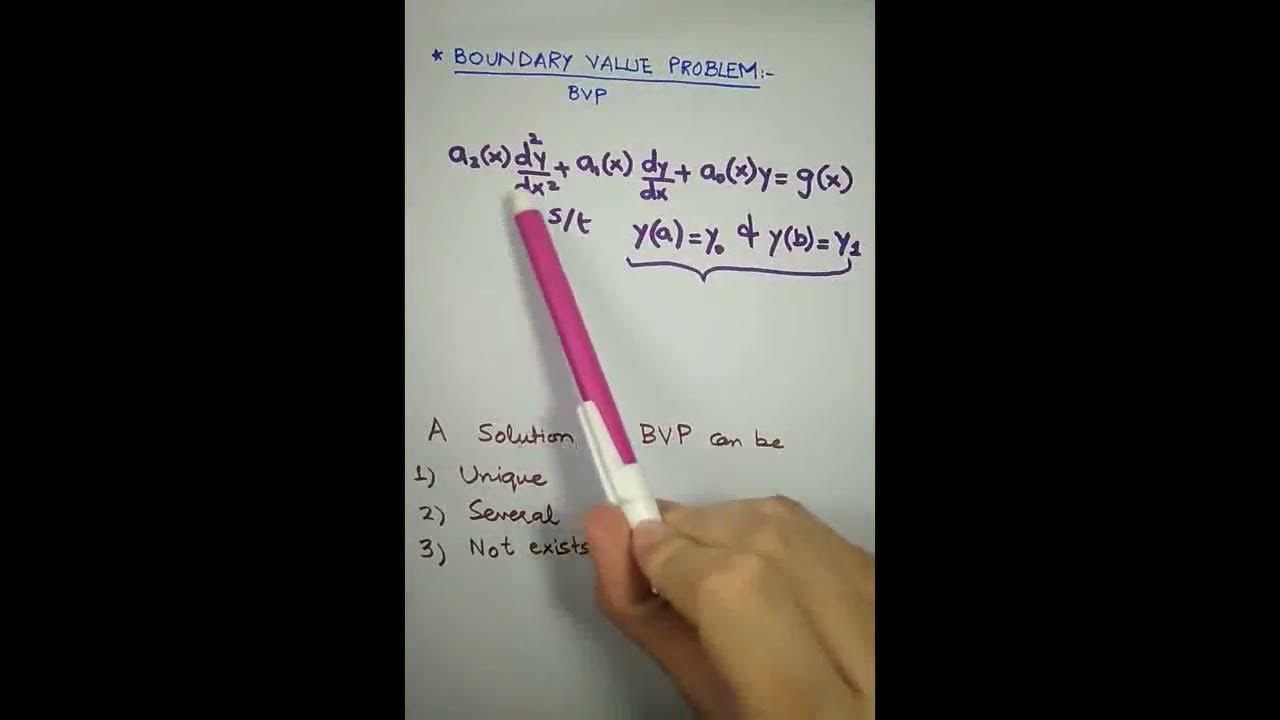 * BOUNDARY VALUE PROBLEM:-
BVP
a₂(x) d²y/dx² + a₁(x) dy/dx + a₀(x)y = g(x)
s/t y(a)=y₀ & y(b)=y₁
A Solution BVP can be
1) Unique
2) Several
3) Not exists